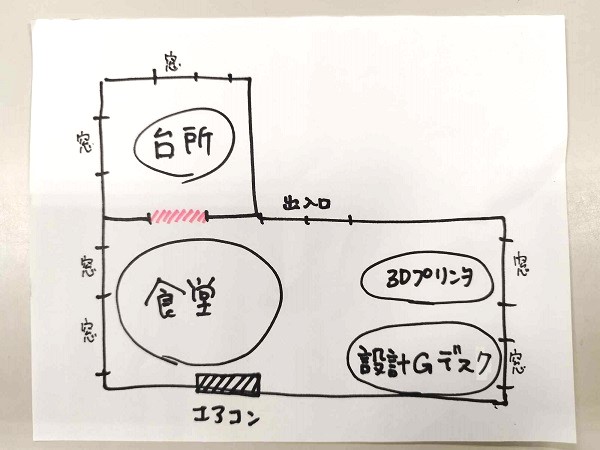 窓
窓
台所
出入口
窓
食堂
3Dプリンタ
窓
窓
設計Gデスク
窓
エアコン